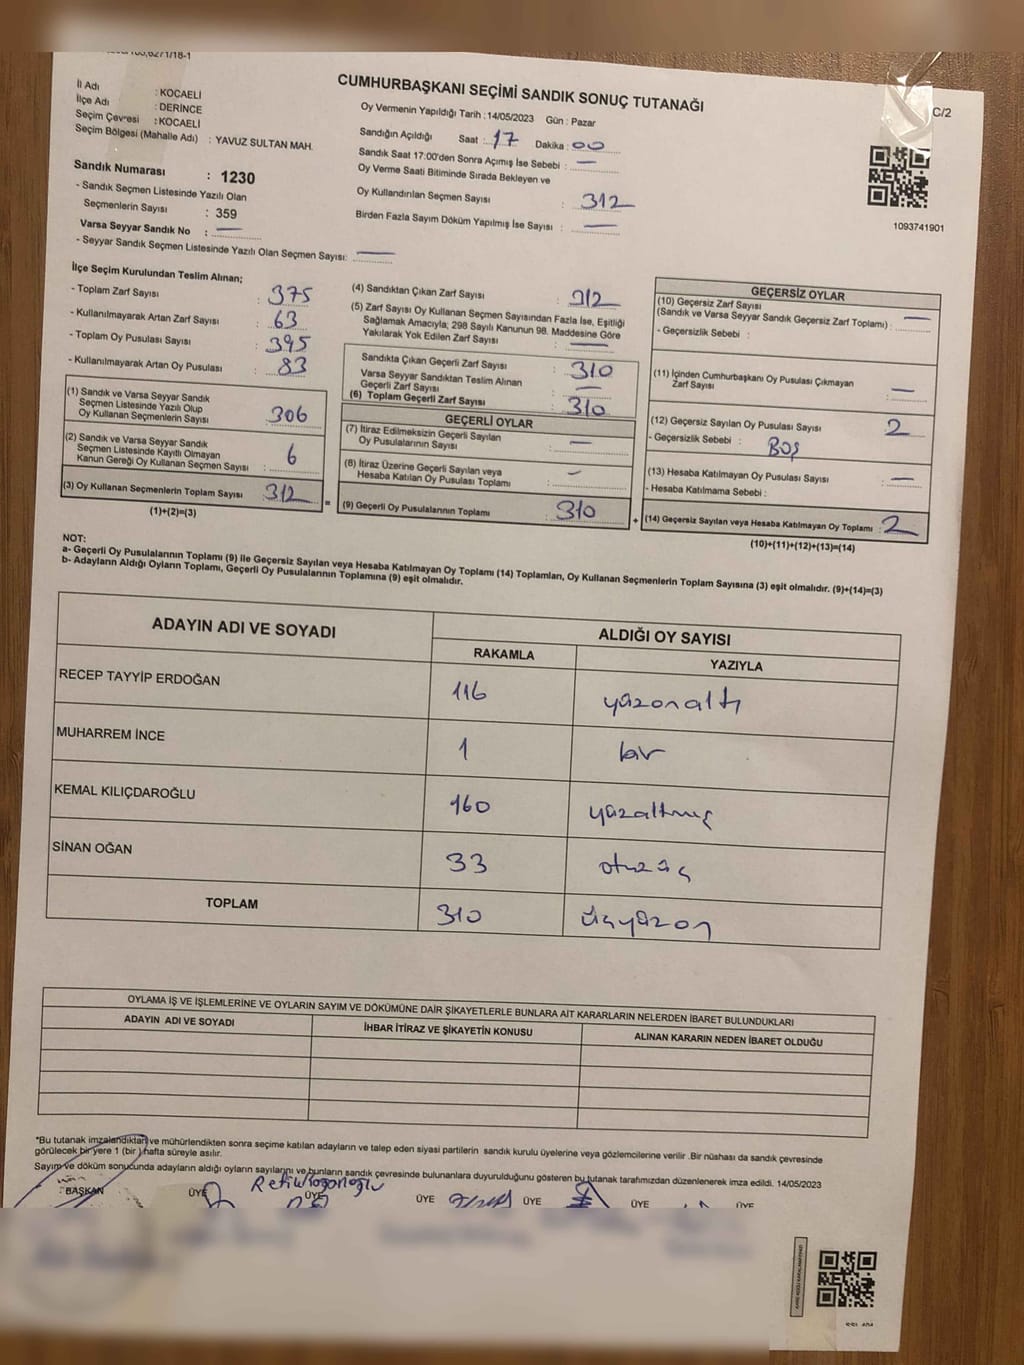 CUMHURBAŞKANI SEÇİMİ SANDIK SONUÇ TUTANAĞI
C/2
İl Adı : KOCAELİ
İlçe Adı : DERİNCE
Seçim Çevresi : KOCAELİ
Seçim Bölgesi (Mahalle Adı) : YAVUZ SULTAN MAH.
Sandık Numarası : 1230
- Sandık Seçmen Listesinde Yazılı Olan
Seçmenlerin Sayısı : 359
Varsa Seyyar Sandık No : —
- Seyyar Sandık Seçmen Listesinde Yazılı Olan Seçmen Sayısı: —
Oy Vermenin Yapıldığı Tarih : 14/05/2023 Gün : Pazar
Sandığın Açıldığı Saat : 17 Dakika : 00
Sandık Saat 17:00'den Sonra Açımış İse Sebebi : —
Oy Verme Saati Bitiminde Sırada Bekleyen ve
Oy Kullandırılan Seçmen Sayısı : 312
Birden Fazla Sayım Döküm Yapılmış İse Sayısı : —
1093741901
İlçe Seçim Kurulundan Teslim Alınan;
- Toplam Zarf Sayısı : 375
- Kullanılmayarak Artan Zarf Sayısı : 63
- Toplam Oy Pusulası Sayısı : 395
- Kullanılmayarak Artan Oy Pusulası : 83
(1) Sandık ve Varsa Seyyar Sandık
Seçmen Listesinde Yazılı Olup
Oy Kullanan Seçmenlerin Sayısı : 306
(2) Sandık ve Varsa Seyyar Sandık
Seçmen Listesinde Kayıtlı Olmayan
Kanun Gereği Oy Kullanan Seçmen Sayısı : 6
(3) Oy Kullanan Seçmenlerin Toplam Sayısı : 312
(1)+(2)=(3)
=
(4) Sandıktan Çıkan Zarf Sayısı : 312
(5) Zarf Sayısı Oy Kullanan Seçmen Sayısından Fazla İse, Eşitliği
Sağlamak Amacıyla; 298 Sayılı Kanunun 98. Maddesine Göre
Yakılarak Yok Edilen Zarf Sayısı : —
Sandıkta Çıkan Geçerli Zarf Sayısı : 310
Varsa Seyyar Sandıktan Teslim Alınan
Geçerli Zarf Sayısı : —
(6) Toplam Geçerli Zarf Sayısı : 310
GEÇERLİ OYLAR
(7) İtiraz Edilmeksizin Geçerli Sayılan
Oy Pusulalarının Sayısı : —
(8) İtiraz Üzerine Geçerli Sayılan veya
Hesaba Katılan Oy Pusulası Toplamı : —
(9) Geçerli Oy Pusulalarının Toplamı : 310
+
GEÇERSİZ OYLAR
(10) Geçersiz Zarf Sayısı
(Sandık ve Varsa Seyyar Sandık Geçersiz Zarf Toplamı) : —
- Geçersizlik Sebebi :
(11) İçinden Cumhurbaşkanı Oy Pusulası Çıkmayan
Zarf Sayısı : —
(12) Geçersiz Sayılan Oy Pusulası Sayısı : 2
- Geçersizlik Sebebi : BOŞ
(13) Hesaba Katılmayan Oy Pusulası Sayısı : —
- Hesaba Katılmama Sebebi :
(14) Geçersiz Sayılan veya Hesaba Katılmayan Oy Toplamı : 2
(10)+(11)+(12)+(13)=(14)
NOT:
a- Geçerli Oy Pusulalarının Toplamı (9) ile Geçersiz Sayılan veya Hesaba Katılmayan Oy Toplamı (14) Toplamları, Oy Kullanan Seçmenlerin Toplam Sayısına (3) eşit olmalıdır. (9)+(14)=(3)
b- Adayların Aldığı Oyların Toplamı, Geçerli Oy Pusulalarının Toplamına (9) eşit olmalıdır.
ADAYIN ADI VE SOYADI ALDIĞI OY SAYISI
RAKAMLA YAZIYLA
RECEP TAYYİP ERDOĞAN 116 yüzonaltı
MUHARREM İNCE 1 bir
KEMAL KILIÇDAROĞLU 160 yüzaltmış
SİNAN OĞAN 33 otuzüç
TOPLAM 310 üçyüzon
OYLAMA İŞ VE İŞLEMLERİNE VE OYLARIN SAYIM VE DÖKÜMÜNE DAİR ŞİKAYETLERLE BUNLARA AİT KARARLARIN NELERDEN İBARET BULUNDUKLARI
ADAYIN ADI VE SOYADI İHBAR İTİRAZ VE ŞİKAYETİN KONUSU ALINAN KARARIN NEDEN İBARET OLDUĞU
*Bu tutanak imzalandıktan ve mühürlendikten sonra seçime katılan adayların ve talep eden siyasi partilerin sandık kurulu üyelerine veya gözlemcilerine verilir .Bir nüshası da sandık çevresinde
görülecek bir yere 1 (bir ) hafta süreyle asılır.
Sayım ve döküm sonucunda adayların aldığı oyların sayılarını ve bunların sandık çevresinde bulunanlara duyurulduğunu gösteren bu tutanak tarafımızdan düzenlenerek imza edildi. 14/05/2023
BAŞKAN ÜYE ÜYE ÜYE ÜYE ÜYE ÜYE